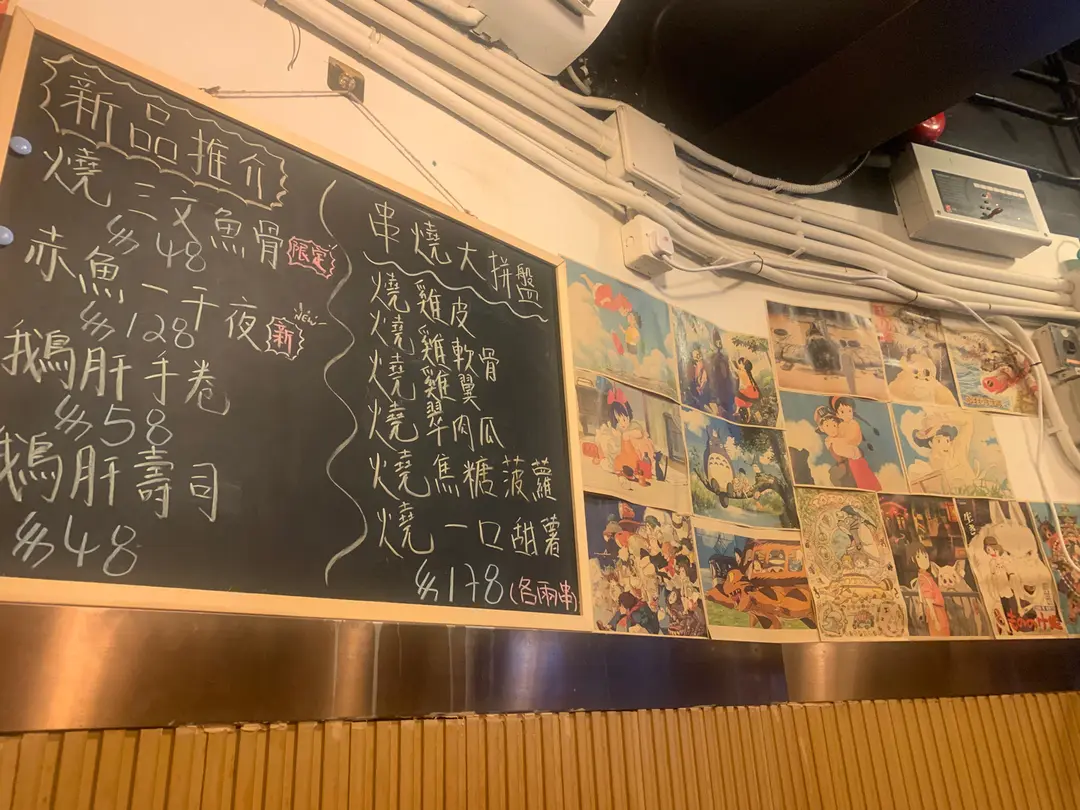 新品推介
燒三文魚骨 限定
$48
赤魚一千夜 NEW 新
$128
鵝肝手卷
$58
鵝肝壽司
$48
串燒大拼盤
燒雞皮
燒雞軟骨
燒雞翼
燒翠肉瓜
燒焦糖菠蘿
燒一口甜薯
$178 (各兩串)